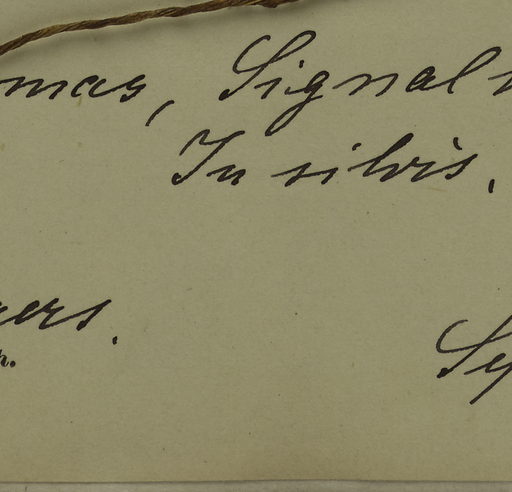 omas, Signal
In silvis.
ers.
Sy